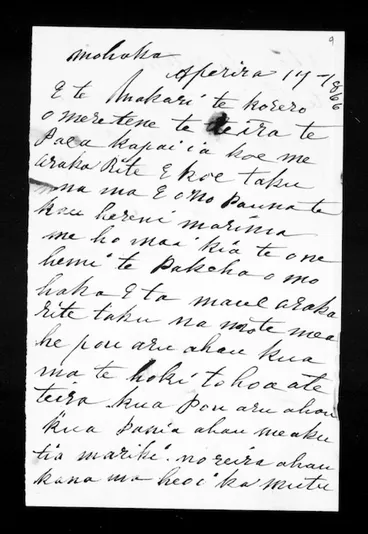 9
mohaka
Aperira 17 - 1866
E te Makarini te korero
o mere tene te teira te
Paea kapai ia koe me
araka Rite E koe taku
na ma E ono Pauna te
kau hereni marima
me ho mai kia te one
hemi te Pakeha o mo
haka E ta maue araka
rite taku na mote mea
he pou aru ahau kua
ma te hoki to hoa ate
teira. kua Pou aru ahau
kua Pania ahau meaku
tia mariki. no reira ahau
kana ma heoi ka mutu